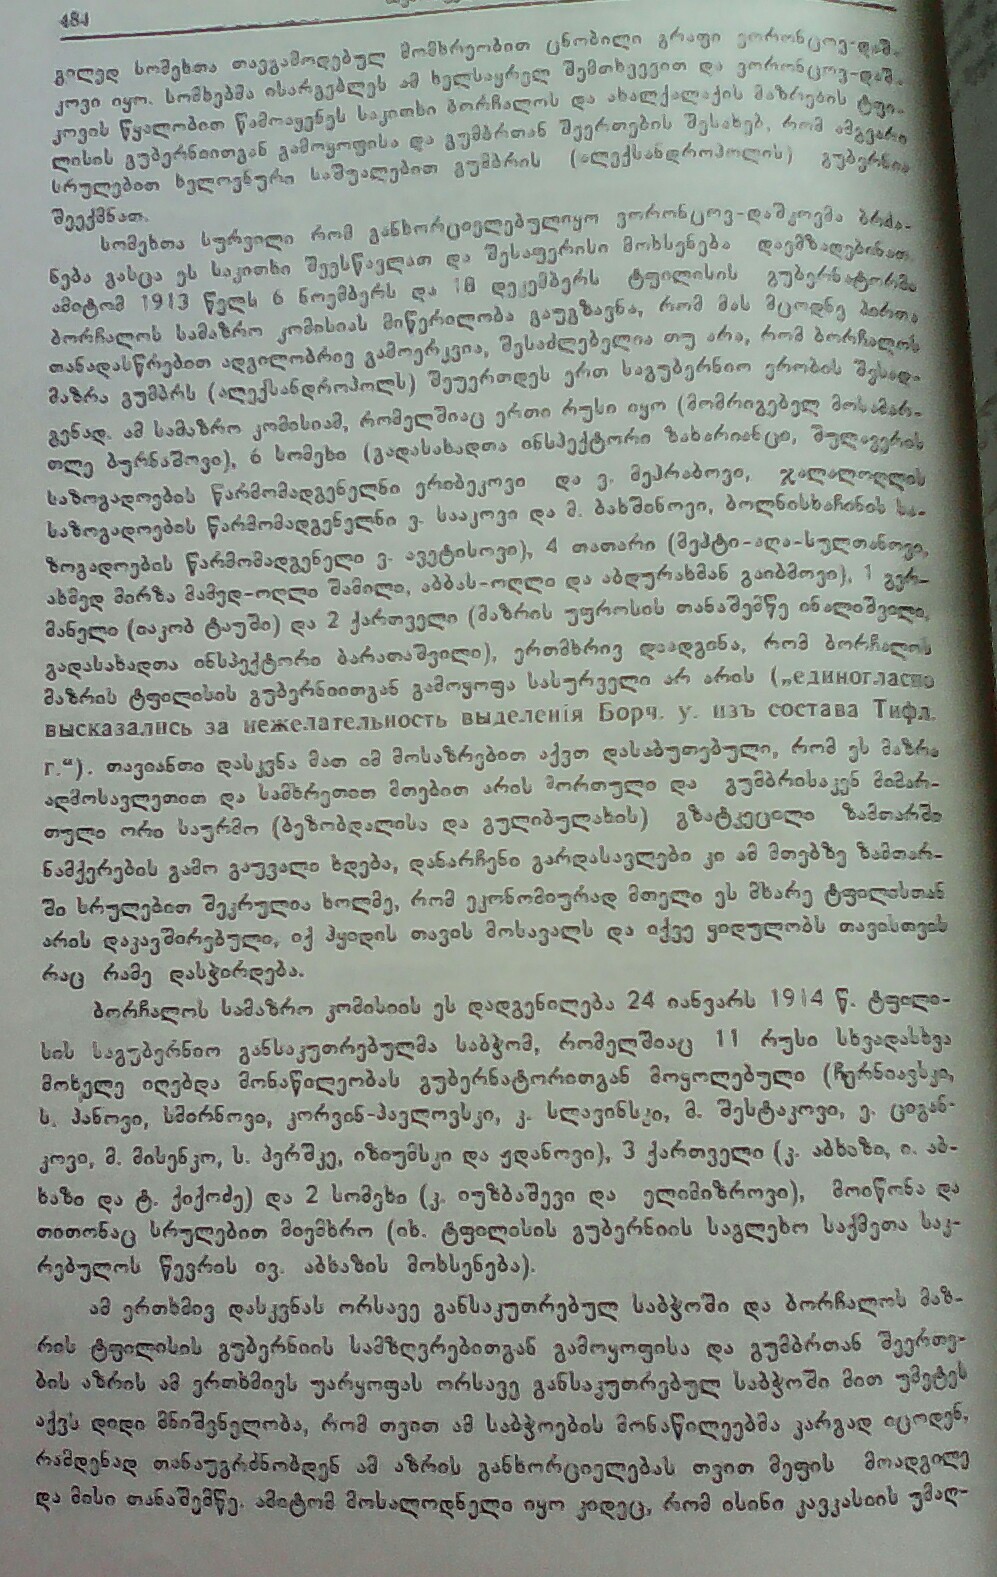 484
გილედ სომეხთა თავგამოდებულ მომხრეობით ცნობილი გრაფი ვორონცოვ-დაშ-
კოვი იყო. სომხებმა ისარგებლეს ამ ხელსაყრელ შემთხვევით და ვორონცოვ-დაშ-
კოვის წყალობით წამოაყენეს საკითხი ბორჩალოს და ახალქალაქის მაზრების ტფი-
ლისის გუბერნიითგან გამოყოფისა და გუმბრთან შეერთების შესახებ, რომ ამგვარი
სრულებით ხელოვნური საშუალებით გუმბრის (ალექსანდროპოლის) გუბერნია
შეექმნათ.
სომეხთა სურვილი რომ განხორციელებულიყო ვორონცოვ-დაშკოვმა ბრძა-
ნება გასცა ეს საკითხი შეესწავლათ და შესაფერისი მოხსენება დაემზადებინათ
ამიტომ 1913 წელს 6 ნოემბერს და 18 დეკემბერს ტფილისის გუბერნატორმა
ბორჩალოს სამაზრო კომისიას მიწერილობა გაუგზავნა, რომ მას მცოდნე პირთა
თანადასწრებით ადგილობრივ გამოერკვია, შესაძლებელია თუ არა, რომ ბორჩალოს
მაზრა გუმბრს (ალექსანდროპოლს) შეუერთდეს ერთ საგუბერნიო ერობის შესად-
გენად. ამ სამაზრო კომისიამ, რომელშიაც ერთი რუსი იყო (მომრიგებელ მოსამარ-
თლე ბურნაშოვი), 6 სომეხი (გადასახადთა ინსპექტორი ზახარიანცი, შულავერის
საზოგადოების წარმომადგენელნი ერიბეკოვი და ვ. მეჰრაბოვი, ჯალალოღლის
საზოგადოების წარმომადგენელნი ვ. სააკოვი და მ. ბახშინოვი, ბოლნისხაჩინის სა-
ზოგადოების წარმომადგენელი ვ. ავეტისოვი), 4 თათარი (მეჰტი-აღა-სულთანოვი,
ახმედ მირზა მამედ-ოღლი შამილი, აბბას-ოღლი და აბდურახმან გაიბმოვი), 1 გერ-
მანელი (იაკობ ტაუში) და 2 ქართველი (მაზრის უფროსის თანაშემწე ინალიშვილი,
გადასახადთა ინსპექტორი ბარათაშვილი), ერთმხრივ დაადგინა, რომ ბორჩალოს
მაზრის ტფილისის გუბერნიითგან გამოყოფა სასურველი არ არის („единогласно
высказались за нежелательность выделенія Борч. у. изъ состава Тифл.
г.“). თავიანთი დასკვნა მათ იმ მოსაზრებით აქვთ დასაბუთებული, რომ ეს მაზრა
აღმოსავლეთით და სამხრეთით მთებით არის მორთული და გუმბრისაკენ მიმარ-
თული ორი საურმო (ბეზობდალისა და გულიბულახის) გზატკეცილი ზამთარში
ნამქერების გამო გაუვალი ხდება, დანარჩენი გარდასავლები კი ამ მთებზე ზამთარ-
ში სრულებით შეკრულია ხოლმე, რომ ეკონომიურად მთელი ეს მხარე ტფილისთან
არის დაკავშირებული, იქ ჰყიდის თავის მოსავალს და იქვე ყიდულობს თავისთვის
რაც რამე დასჭირდება.
ბორჩალოს სამაზრო კომისიის ეს დადგენილება 24 იანვარს 1914 წ. ტფილი-
სის საგუბერნიო განსაკუთრებულმა საბჭომ, რომელშიაც 11 რუსი სხვადასხვა
მოხელე იღებდა მონაწილეობას გუბერნატორითგან მოყოლებული (ჩერნიავსკი,
ს. პანოვი, სმირნოვი, კორვინ-პავლოვსკი, კ. სლავინსკი, მ. შესტაკოვი, ე. ციგან-
კოვი, მ. მისენკო, ს. პერშკე, იზიუმსკი და ჟდანოვი), 3 ქართველი (კ. აბხაზი, ი. აბ-
ხაზი და ტ. ქიქოძე) და 2 სომეხი (კ. იუზბაშევი და ელიმიზროვი), მოიწონა და
თითონაც სრულებით მიემხრო (იხ. ტფილისის გუბერნიის საგლეხო საქმეთა საკ-
რებულოს წევრის ივ. აბხაზის მოხსენება).
ამ ერთხმივ დასკვნას ორსავე განსაკუთრებულ საბჭოში და ბორჩალოს მაზ-
რის ტფილისის გუბერნიის სამზღვრებითგან გამოყოფისა და გუმბრთან შეერთე-
ბის აზრის ამ ერთხმივს უარყოფას ორსავე განსაკუთრებულ საბჭოში მით უმეტეს
აქვს დიდი მნიშვნელობა, რომ თვით ამ საბჭოების მონაწილეებმა კარგად იცოდენ,
რამდენად თანაუგრძნობდენ ამ აზრის განხორციელებას თვით მეფის მოადგილე
და მისი თანაშემწე. ამიტომ მოსალოდნელი იყო კიდეც, რომ ისინი კავკასიის უმაღ-